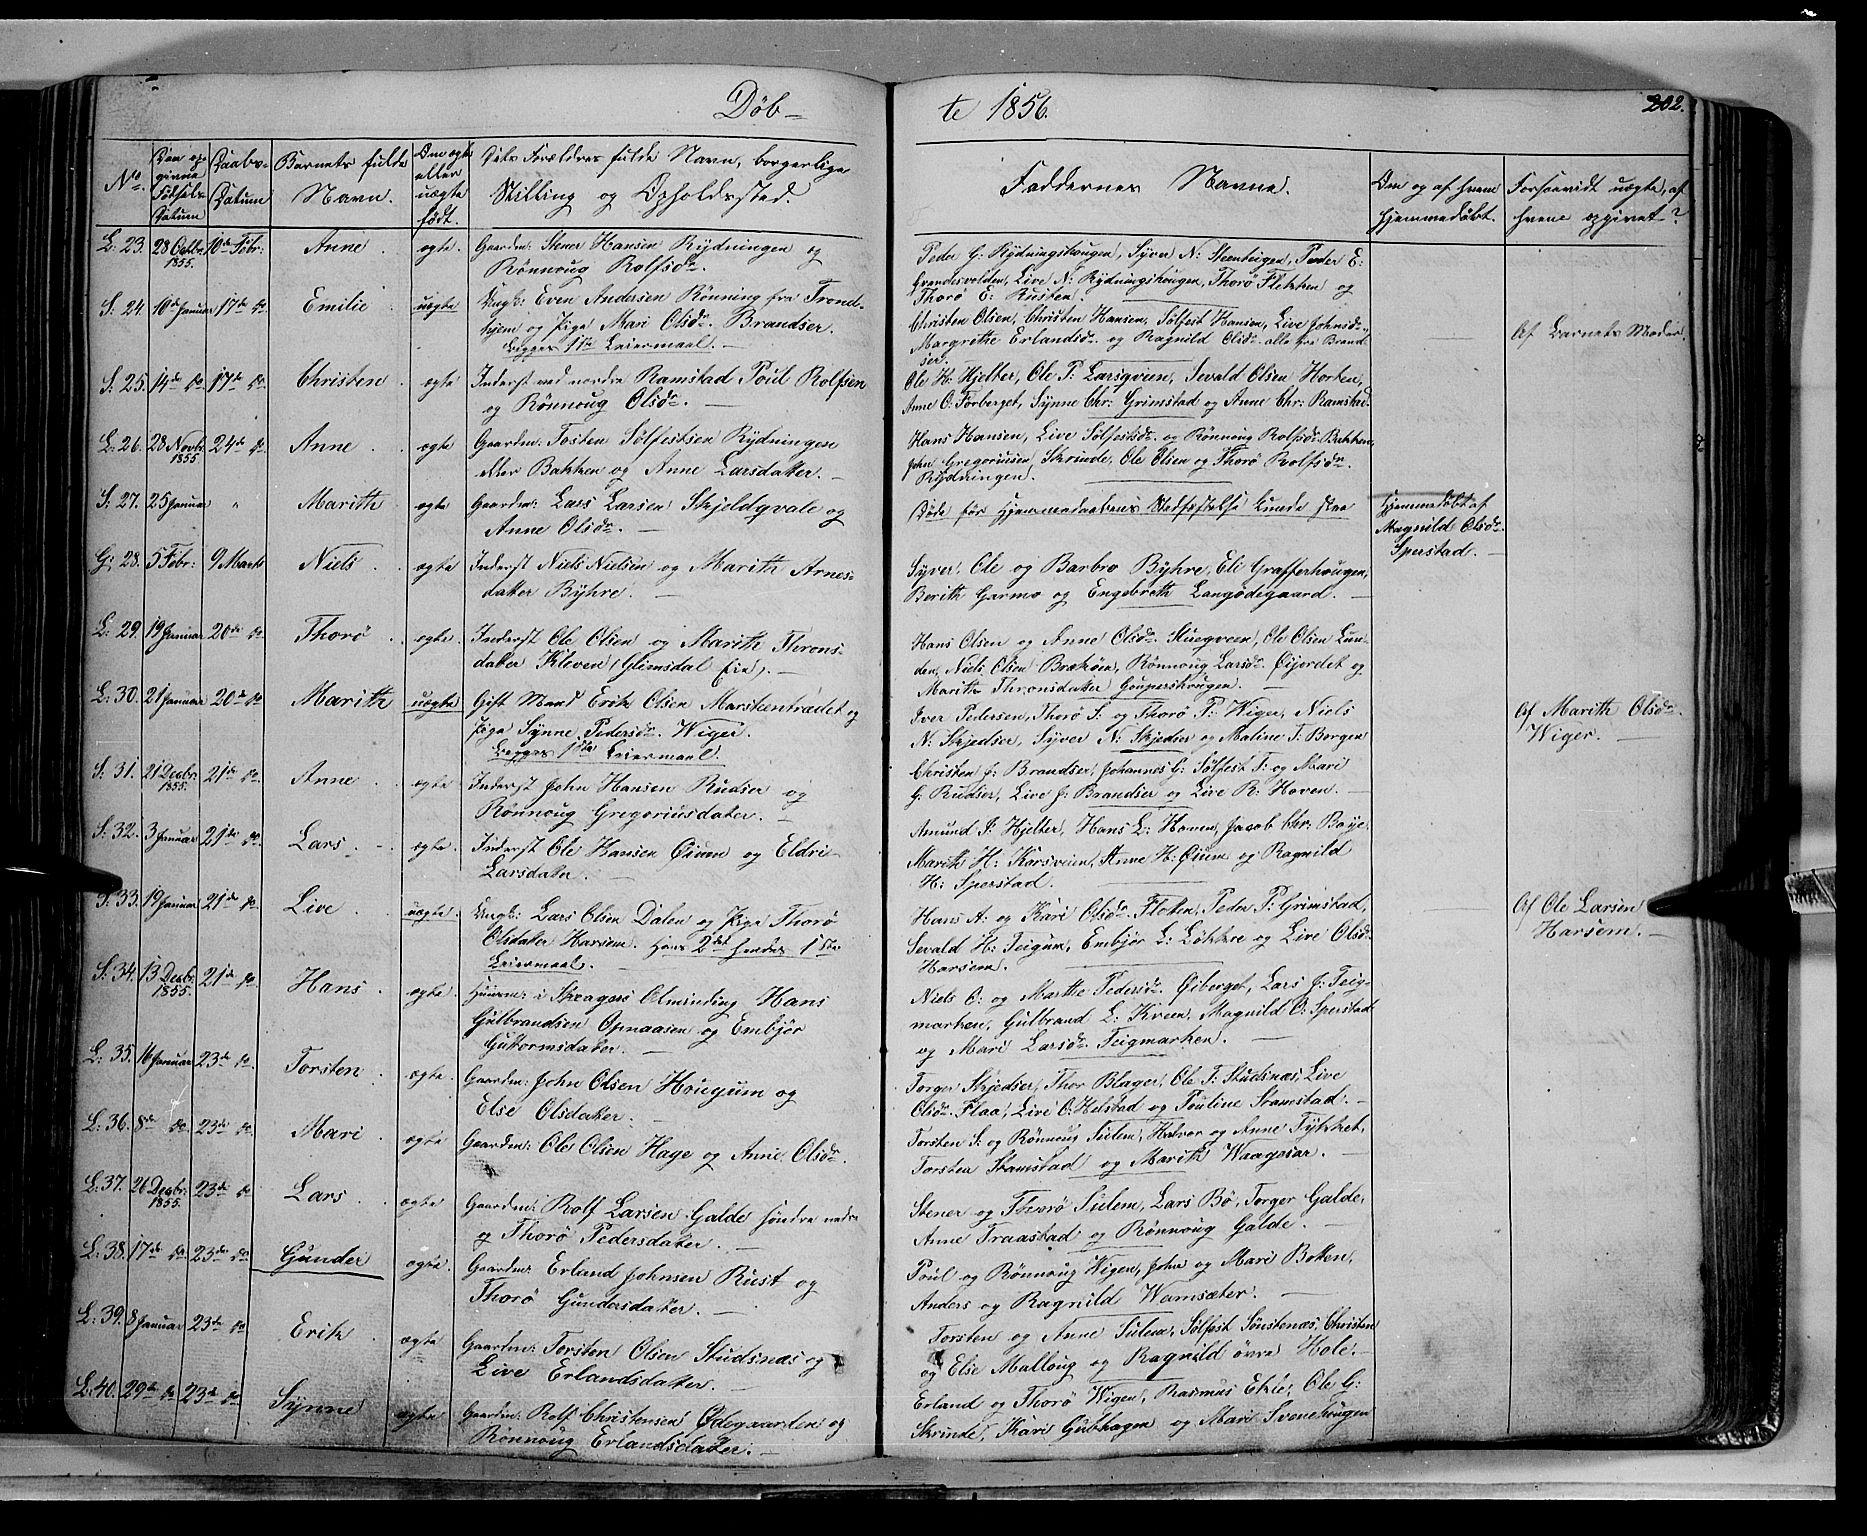 Døb-
te 1856.
202.
No.
Den opgivne Fødsels Datum
Daabs-Datum
Barnets fulde Navn.
Om ægte eller uægte født.
Dets Forældres fulde Navn, borgerlige Stilling og Opholdssted.
Faddernes Navne.
Om og af hvem hjemmedøbt.
Forsaavidt uægte, af hvem opgivet?
L: 23. 28 Octbr. 1855. 10de Febr: Anne ægte. Gaardm: Stener Hansen Rydningen og
Rønnoug Rolfsdr. —
Peder G: Rydningshougen, Syver N: Steenteigen, Peder E:
Grandesvolden, Live N: Rydningshougen, Thorø Flekken og
Thorø E: Rusten.
S: 24. 10de Januar 17de do. Emilie uægte Ungk: Even Andersen Rønning fra Trond-
hjem og Pige Mari Olsdr. Brandser.
Begges 1ste Leiermaal. —
Christen Olsen, Christen Hansen, Sølfest Hansen, Live Johnsdr.
Margrethe Erlandsdr. og Ragnild Olsdr. alle fra Brand-
ser.
Af Barnets Moder.
S: 25. 14de do 17de do. Christen ægte Inderst ved nordre Ramstad Poul Rolfsen
og Rønnoug Olsdr. —
Ole H: Hjelter, Ole P: Larsgveen, Sevald Olsen Horten,
Anne O: Forberget, Synne Chr: Grimstad og Anne Chr: Ramstad.
L: 26. 28 Novbr. 1855. 24de do Anne ægte Gaardm: Tosten Sølfestsen Rydningen
eller Bakken og Anne Larsdatter. —
Hans Hansen, Live Sølfestsdr. og Rønnoug Rolfsdr. Bakken,
John Gregoriusen Skrinde, Ole Olsen og Thorø Rolfsdr.
Rydningen.
S: 27. 25 Januar " Marith ægte Gaardm: Lars Larsen Skjeldqvale og
Anne Olsdr. —
Døde før Hjemmedaabens Stadfæstelse kunde skee
Hjemmedøbt af
Magnild Olsdr.
Sperstad. —
G: 28. 5 Febr: 9 Marts Niels ægte Inderst Niels Nielsen og Marith Arnes-
datter Byhre. —
Syver, Ole og Barbro Byhre, Eli Grafferhougen,
Berith Garmo og Engebreth Langødegaard. —
L: 29. 19 Januar 20de do Thorø ægte. Inderst Ole Olsen og Marith Throns-
datter Kleven (Glimsdal Eie). —
Hans Olsen og Anne Olsdr. Stuegveen, Ole Olsen Lun-
den, Niels Olsen Brækøen, Rønnoug Larsdr. Øijordet og
Marith Thronsdatter Goupershougen. —
L: 30. 21 Januar 20de do Marith uægte Gift Mand Erik Olsen Marsteentrædet og
Pige Synne Pedersdr. Wiger.
Begges 1ste Leiermaal.
Iver Pedersen, Thorø S: og Thorø P: Wiger, Niels
N: Skjedser, Syver N: Skjedser og Maline T: Borgen
Af Marith Olsdr.
Wiger. —
S: 31. 21 Decbr. 1855. 21de do. Anne ægte. Inderst John Hansen Rudser og
Rønnoug Gregoriusdatter. —
Christen J: Brandser, Johannes G: Sølfest T: og Mari
G: Rudser, Live J: Brandser og Live R: Hoven. —
S: 32. 3 Januar 21de do. Lars ægte. Inderst Ole Hansen Øiuen og Eldri
Larsdatter. —
Amund P: Hjelter, Hans L: Hoven, Jacob Chr: Boye,
Marith H: Karsveen, Anne H: Øium og Ragnild
H: Sperstad.
S: 33. 19 Januar 21de do. Live uægte. Ungk: Lars Olsen Dalen og Pige Thorø
Olsdatter Harsem. Hans 2det hendes 1ste
Leiermaal. —
Hans A: og Kari Olsdr. Floten, Peder P: Grimstad,
Sevald H: Teigum, Embjør L: Løkkre og Live Olsdr.
Harsem.
Af Ole Larsen
Harsem. —
S: 34. 13 Decbr. 1855. 21de do. Hans ægte. Huusm: i Skeagers Alminding Hans
Gulbrandsen Opnaasen og Embjør
Guttormsdatter. —
Niels O: og Marthe Pedersdr. Øiberget, Lars J: Teig-
marken, Gulbrand L: Kveen, Magnild O: Sperstad
og Mari Larsdr. Teigmarken. —
L: 35. 16 Januar 23de do Torsten ægte. Gaardm: John Olsen Hougum og
Else Olsdatter. —
Torger Skjedser, Thor Blager, Ole T: Studsnæs, Live
Olsdr. Flaa, Live O: Helstad og Pouline Stamstad. —
L: 36. 8de do. 23de do. Mari ægte. Gaardm: Ole Olsen Hage og Anne Olsdr.
Torsten S: og Rønnoug Sulem, Halvor og Anne Fykket,
Torsten Stamstad og Marith Waageiar. —
L: 37. 26 Decbr. 1855. 23de do Lars ægte Gaardm: Rolf Larsen Galde søndre nedre
og Thorø Pedersdatter. —
Stener og Thorø Sulem, Lars Bø, Torger Galde,
Anne Traastad og Rønnoug Galde. —
L: 38. 17de do 23de do Gunder ægte. Gaardm: Erland Johnsen Rust og
Thorø Gundersdatter. —
Poul og Rønnoug Wigen, John og Mari Botten,
Anders og Ragnild Wamsæter. —
L: 39. 8 Januar 23de do Erik ægte Gaardm: Torsten Olsen Studsnæs og
Live Erlandsdatter. —
Torsten og Anne Sulem, Sølfest Sønstenæs, Christen
og Else Malloug og Ragnild øvre Hole. —
L: 40. 29de do 23de do Synne ægte Gaardm: Rolf Christensen Ødegaarden og
Rønnoug Erlandsdatter. —
Erland og Thorø Wigen, Rasmus Etzie, Ole G:
Skrinde, Kari Gubhagen og Mari Svenehougen